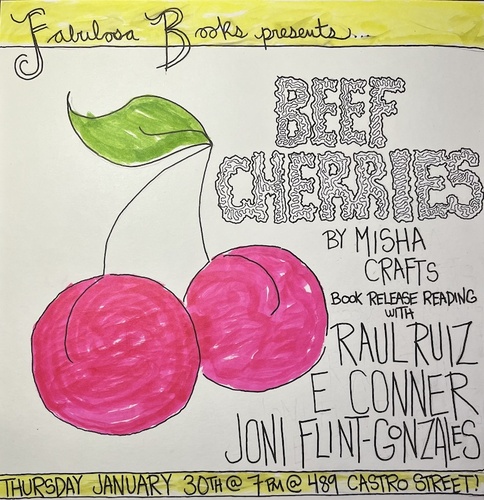 Fabulosa Books presents...
BEEF
CHERRIES
BY MISHA
CRAFTS
BOOK RELEASE READING
WITH
RAUL RUIZ
E CONNER
JONI FLINT-GONZALES
THURSDAY JANUARY 30TH @ 7PM @ 489 CASTRO STREET!